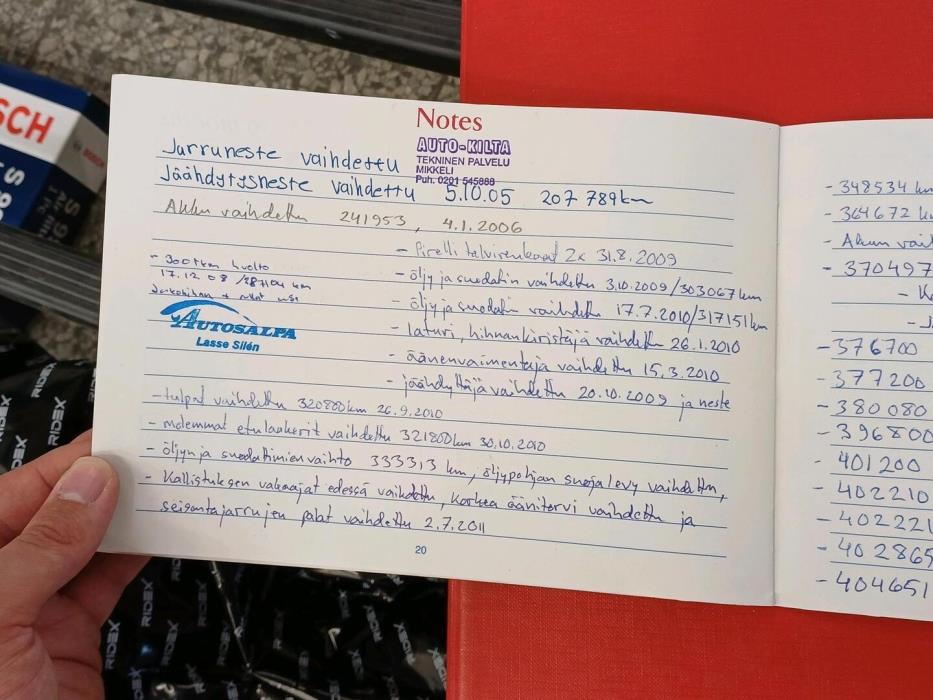 Notes
AUTO-KILTA
TEKNINEN PALVELU
MIKKELI
Puh. 0201 545888
Jarruneste vaihdettu
Jäähdytysneste vaihdettu 5.10.05 207 789km
Akku vaihdettu 241953, 4.1.2006
- Pirelli talvirenkaat 2x 31.8.2009
- 300tkm huolto
17.12 08 /287104 km
- öljy ja suodatin vaihdettu 3.10.2009/303067km
- öljy ja suodatin vaihdettu 17.7.2010/317151km
AUTOSALPA
Lasse Silén
- laturi, hihnankiristäjä vaihdettu 26.1.2010
- äänenvaimentaja vaihdettu 15.3.2010
- jäähdyttäjä vaihdettu 20.10.2009 ja neste
- tulpat vaihdettu 320800km 26.9.2010
- molemmat etulaakerit vaihdettu 321800km 30.10.2010
- öljyn ja suodattimien vaihto 333313 km, öljypohjan suojalevy vaihdettu,
- Kallistuksen vakaajat edessä vaihdettu, korkea äänitorvi vaihdettu ja
seisontajarrujen palat vaihdettu 2.7.2011
20
- 348534 km
- 364672 km
- Akun
- 370497
- 376700
- 377200
- 380080
- 396800
- 401200
- 402210
- 402221
- 402865
- 404651
SCH
BOSCH
RIDEX
RIDEX
RIDEX
RIDEX
RIDEX